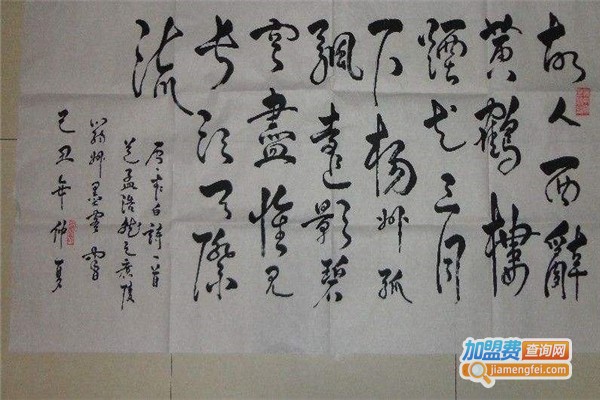 故人西辭
黄鶴樓
煙花三月
下楊州孤
颿遠影碧
空盡惟見
長江天際
流
李白詩一首
送孟浩然之廣陵
翁州墨
己丑年仲夏
加盟费查询网
jiamengfei.com